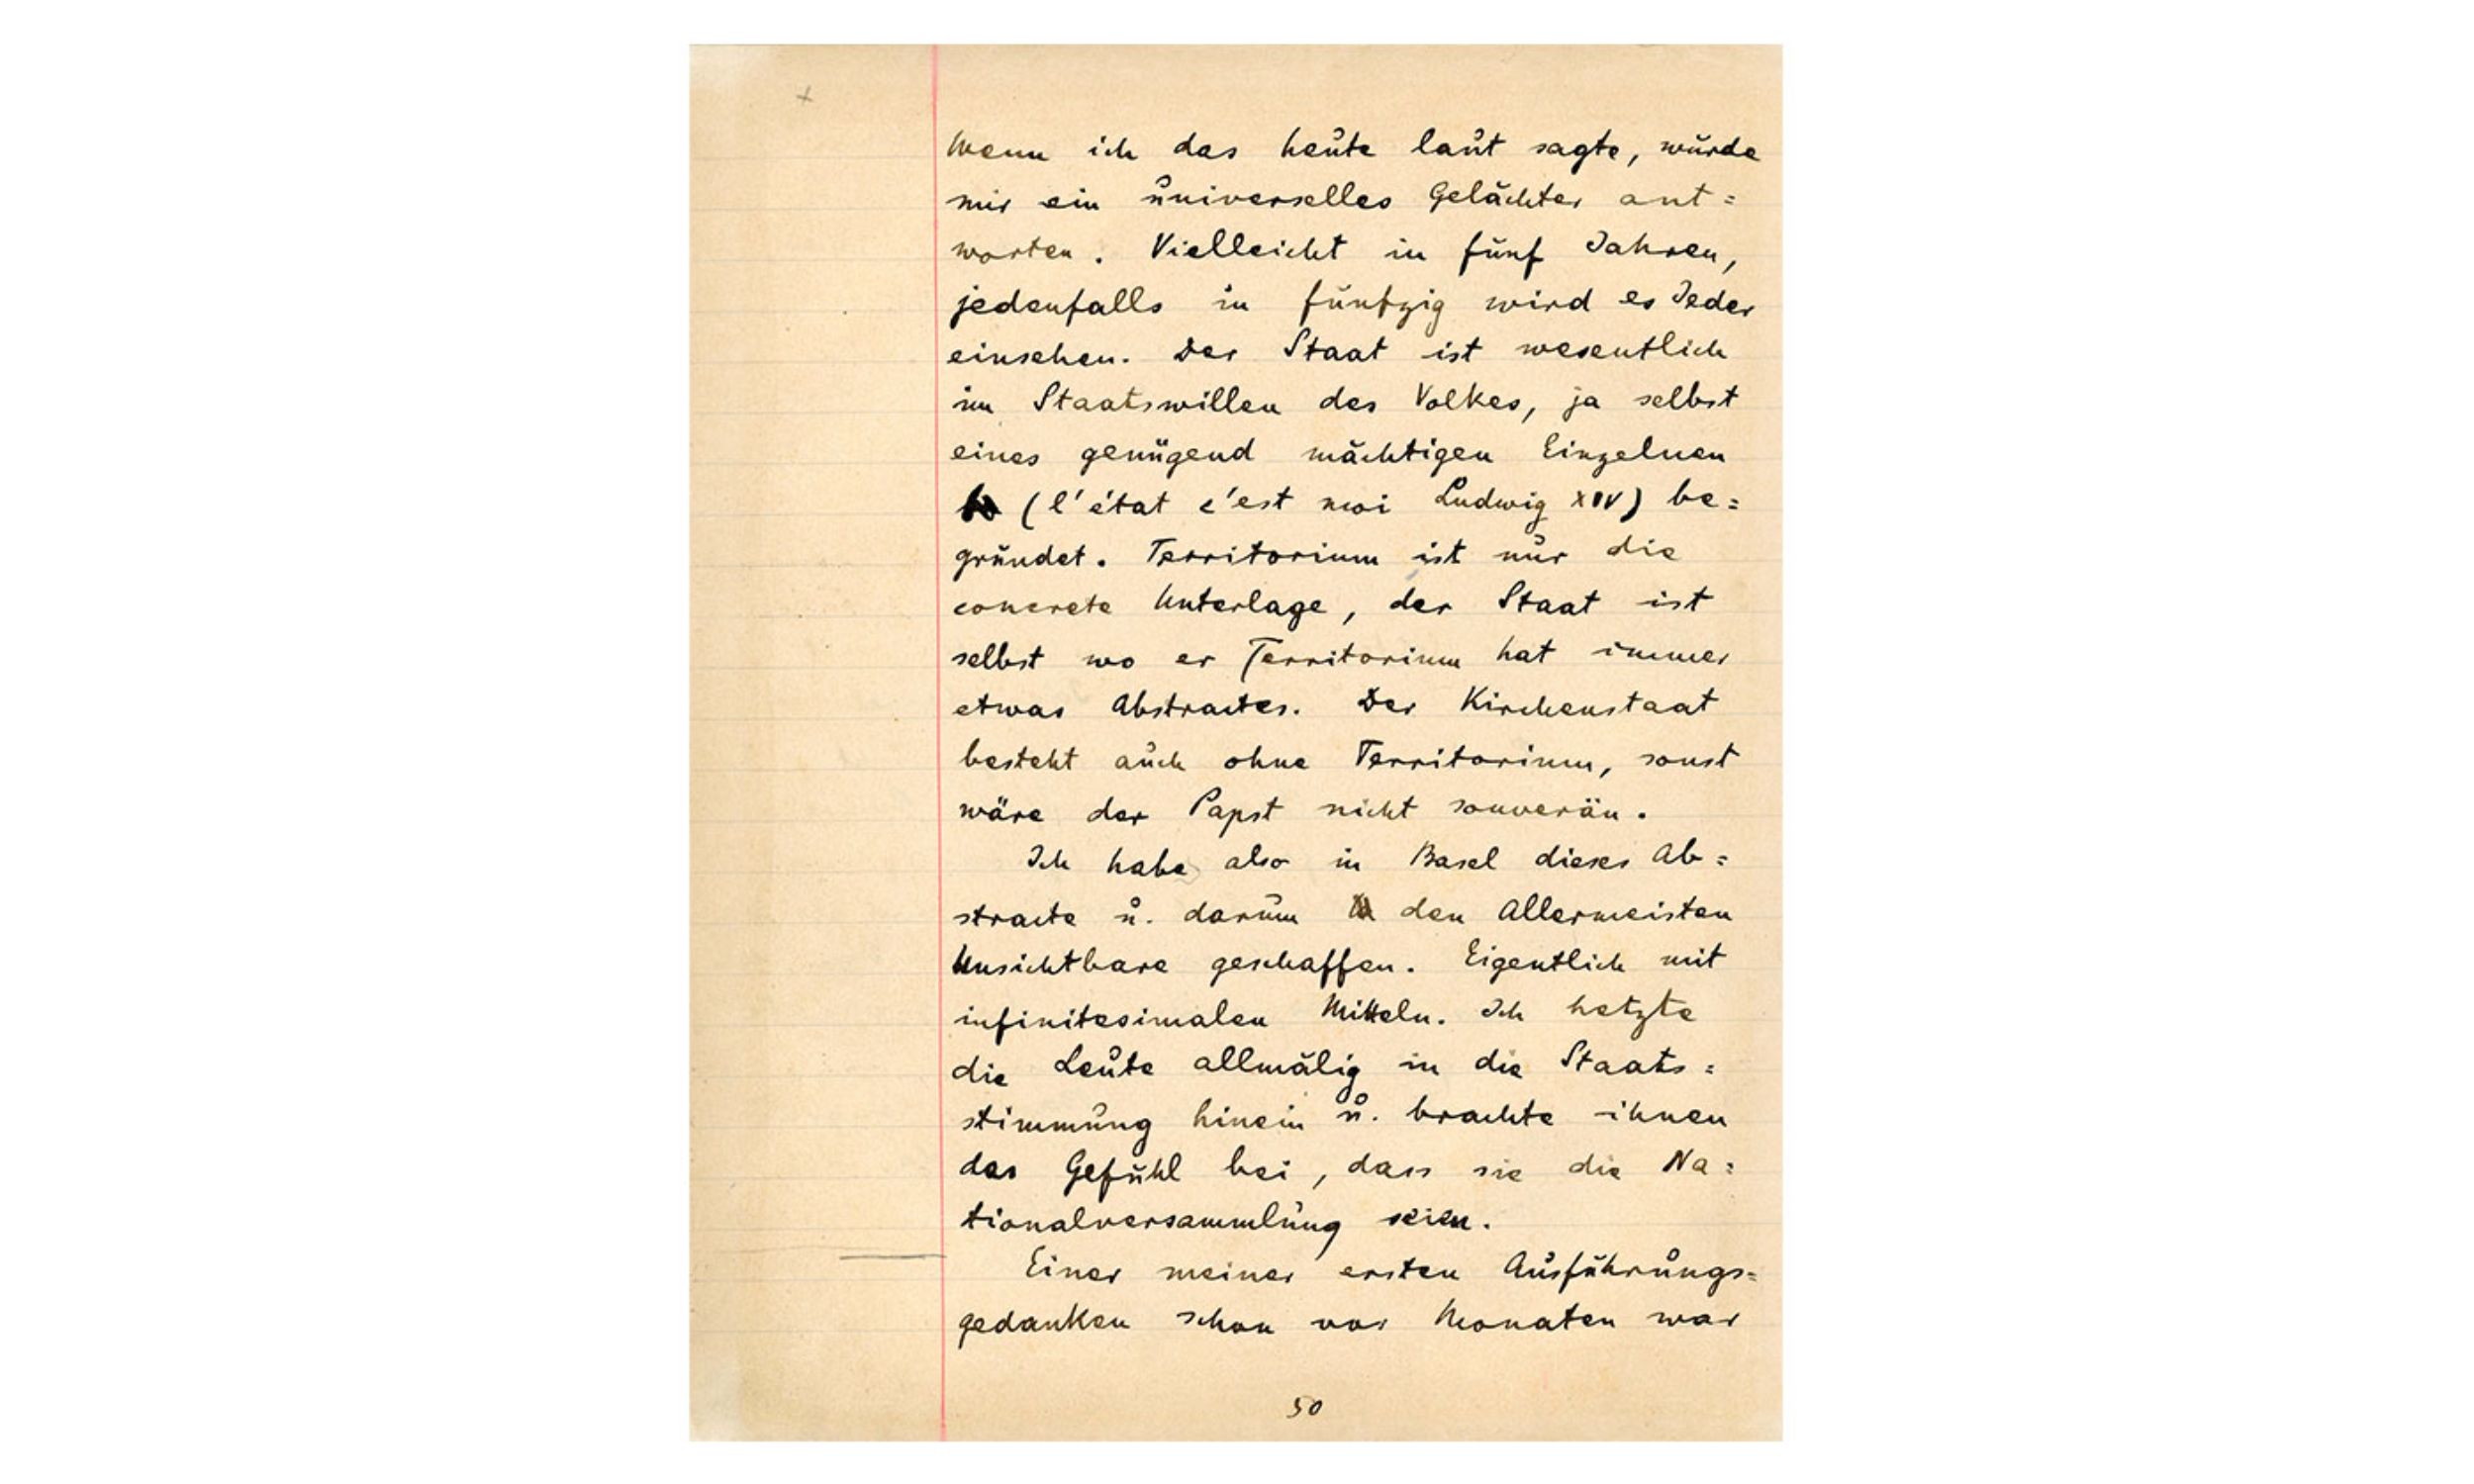 Wenn ich das heute laut sagte, würde
mir ein universelles Gelächter ant=
worten. Vielleicht in fünf Jahren,
jedenfalls in fünfzig wird es Jeder
einsehen. Der Staat ist wesentlich
im Staatswillen des Volkes, ja selbst
eines genügend mächtigen Einzelnen
(l'état c'est moi Ludwig XIV) be=
gründet. Territorium ist nur die
concrete Unterlage, der Staat ist
selbst wo er Territorium hat immer
etwas Abstractes. Der Kirchenstaat
besteht auch ohne Territorium, sonst
wäre der Papst nicht souverän.
Ich habe also in Basel dieses Ab=
stracte u. darum den Allermeisten
Unsichtbare geschaffen. Eigentlich mit
infinitesimalen Mitteln. Ich hetzte
die Leute allmälig in die Staats=
stimmung hinein u. brachte ihnen
das Gefühl bei, dass sie die Na=
tionalversammlung seien.
Einer meiner ersten Ausführungs=
gedanken schon vor Monaten war
50